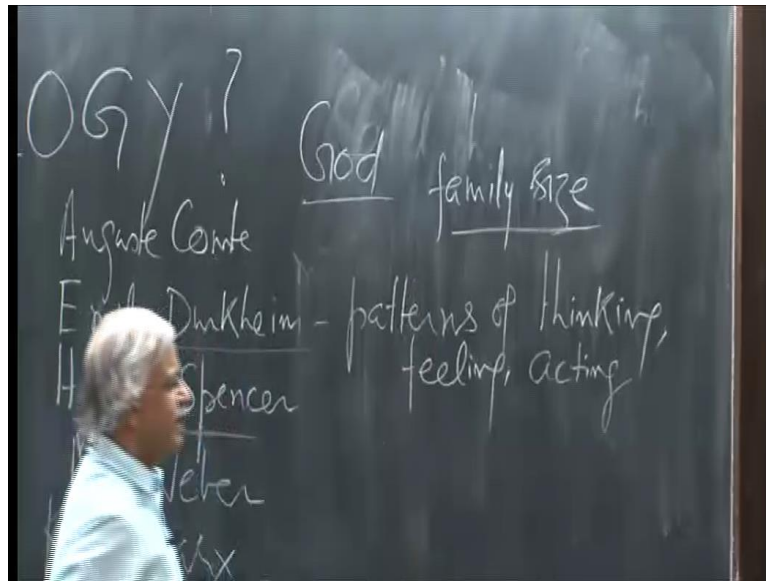 OGY?
God
family size
Auguste Comte
E Durkheim - patterns of thinking,
feeling, acting
H Spencer
Weber